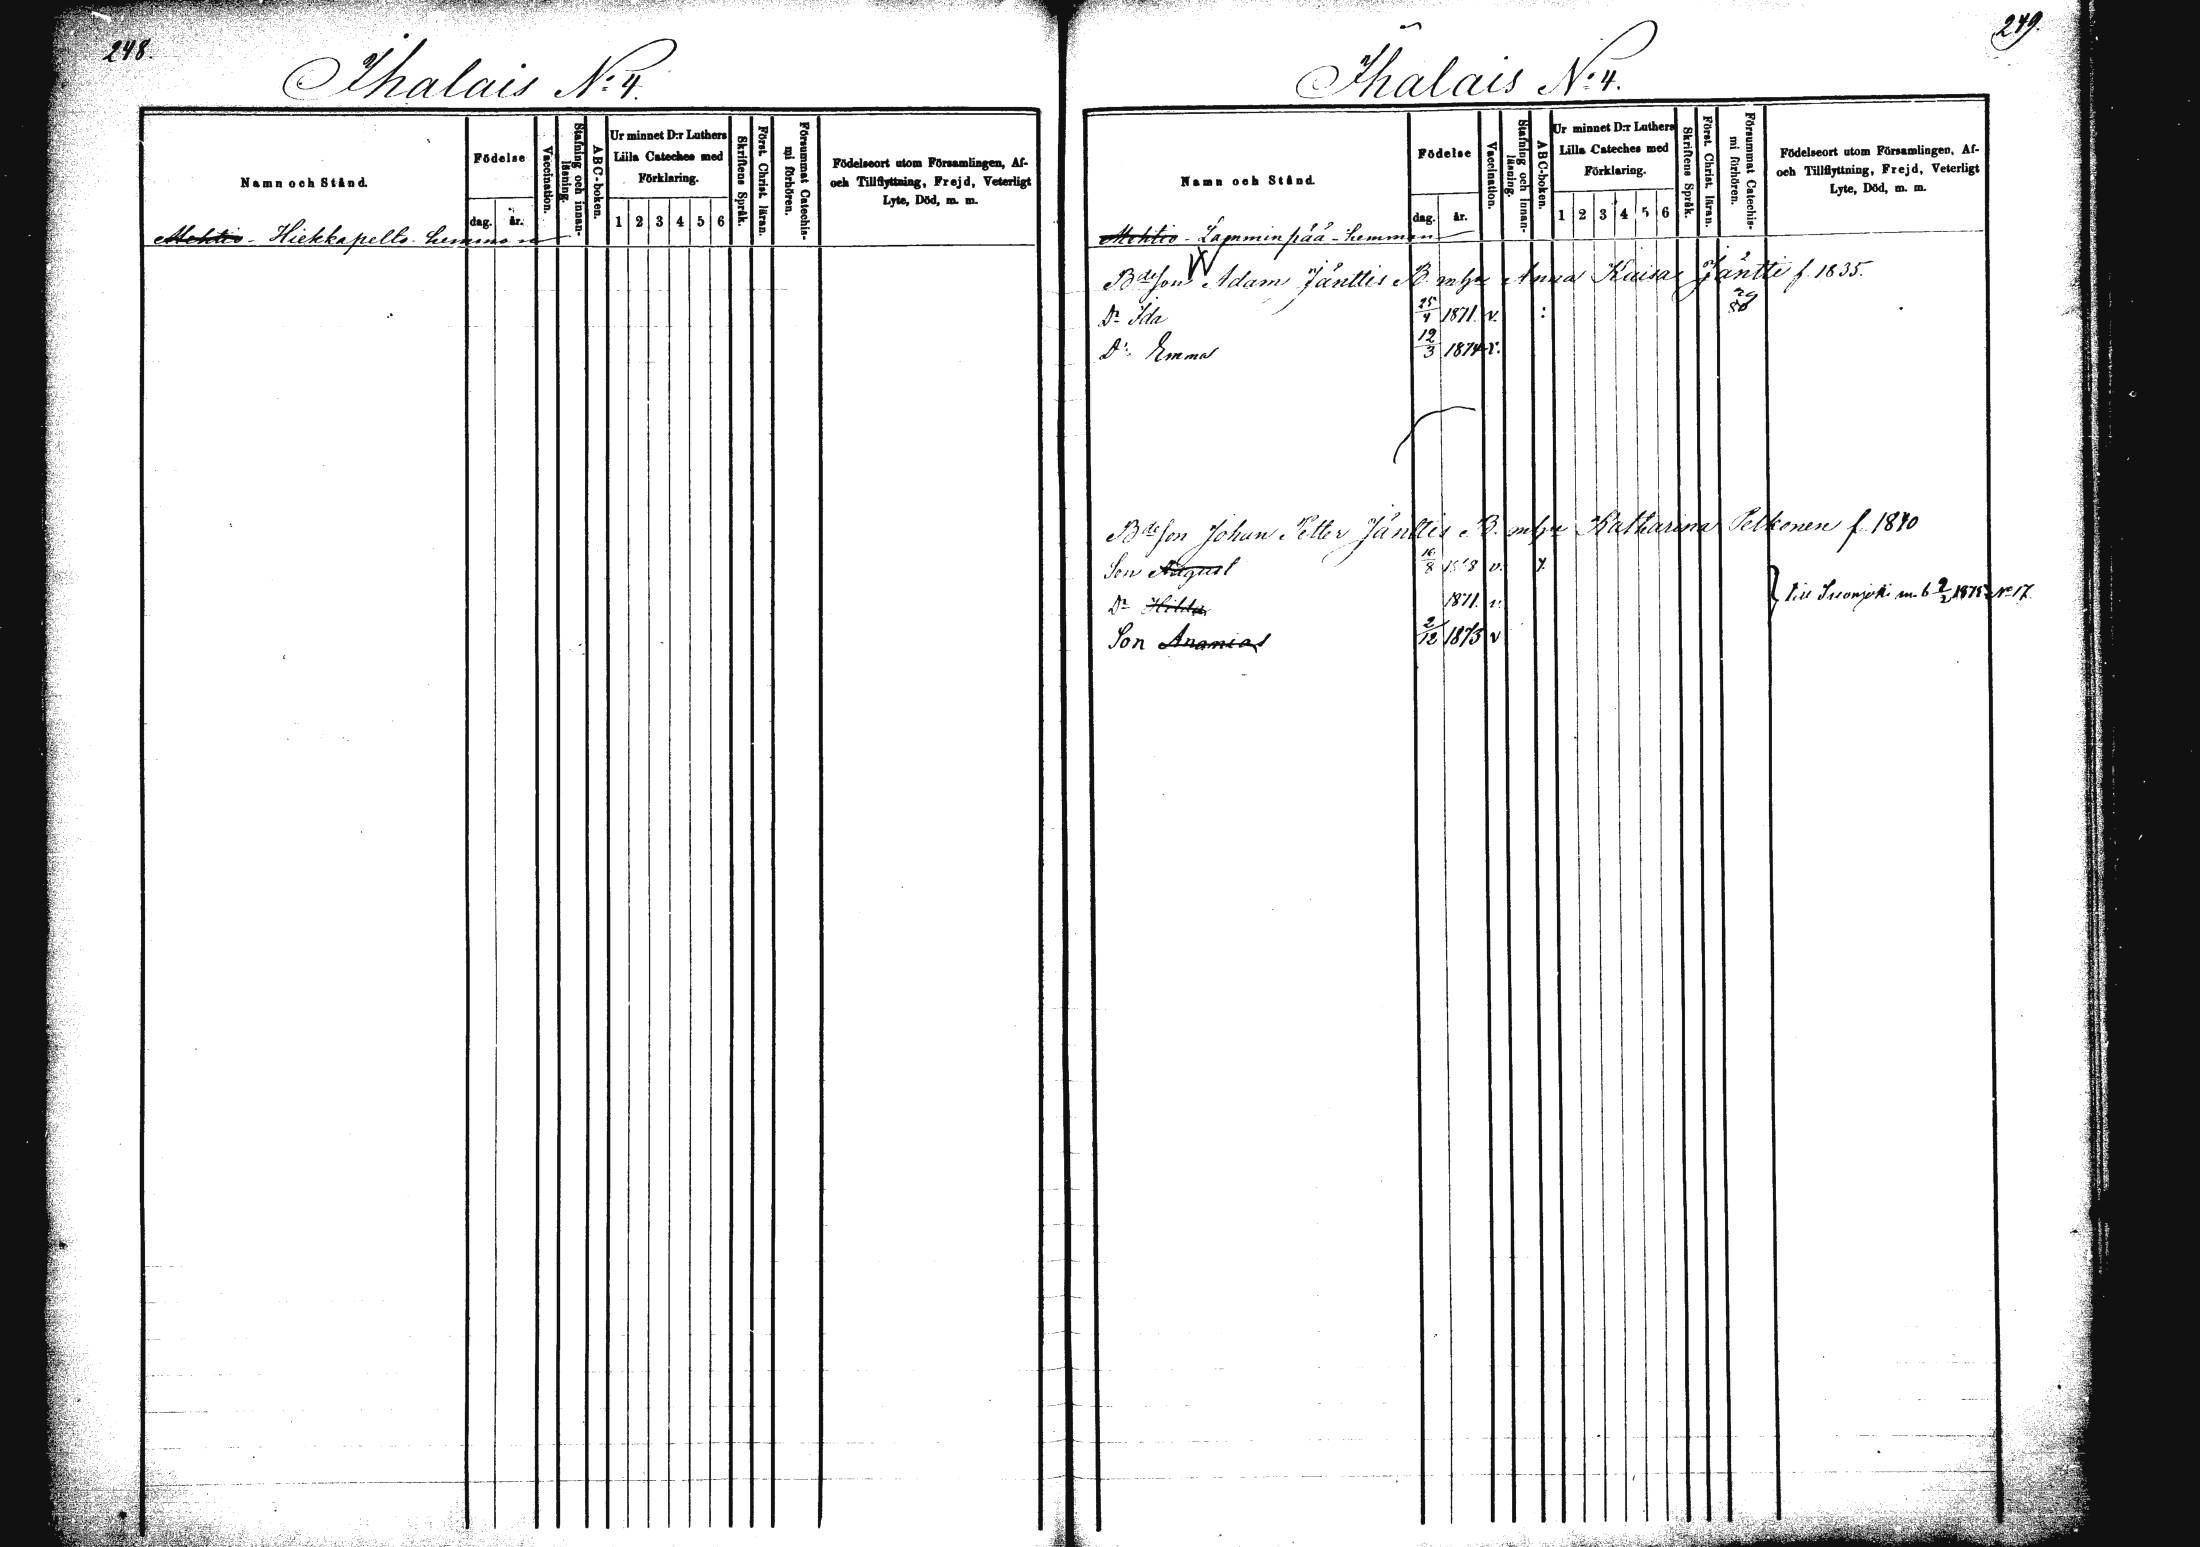 248.
Ihalais No 4.
Namn och Stånd.
Födelse
dag.
år.
Vaccination.
Stafning och innan-
läsning.
ABC-boken.
Ur minnet D:r Luthers
Lilla Cateches med
Förklaring.
1 2 3 4 5 6
Skriftens Språk.
Först. Christ. läran.
Försummat Catechis-
mi förhören.
Födelseort utom Församlingen, Af-
och Tillflyttning, Frejd, Veterligt
Lyte, Död, m. m.
Mehtio - Hiekkapelto - hemman
249.
Ihalais No 4.
Namn och Stånd.
Födelse
dag.
år.
Vaccination.
Stafning och innan-
läsning.
ABC-boken.
Ur minnet D:r Luthers
Lilla Cateches med
Förklaring.
1 2 3 4 5 6
Skriftens Språk.
Först. Christ. läran.
Försummat Catechis-
mi förhören.
Födelseort utom Församlingen, Af-
och Tillflyttning, Frejd, Veterligt
Lyte, Död, m. m.
Mehtio - Lamminpää - hemman
Bdeson Adam Jänttis B. m hu Anna Kaisa Jäntti f. 1835.
Dr Ida 25/4 1871. v. :
Dr Emma 12/3 1874 v.
Bdeson Johan Petter Jänttis B. m hu Katharina Pelkonen f. 1840
Son August 8 1868 v.
Dr Hilda 1871. v.
Till m. b 2/2 1875 No 17.
Son Ananias 2/12 1873 v